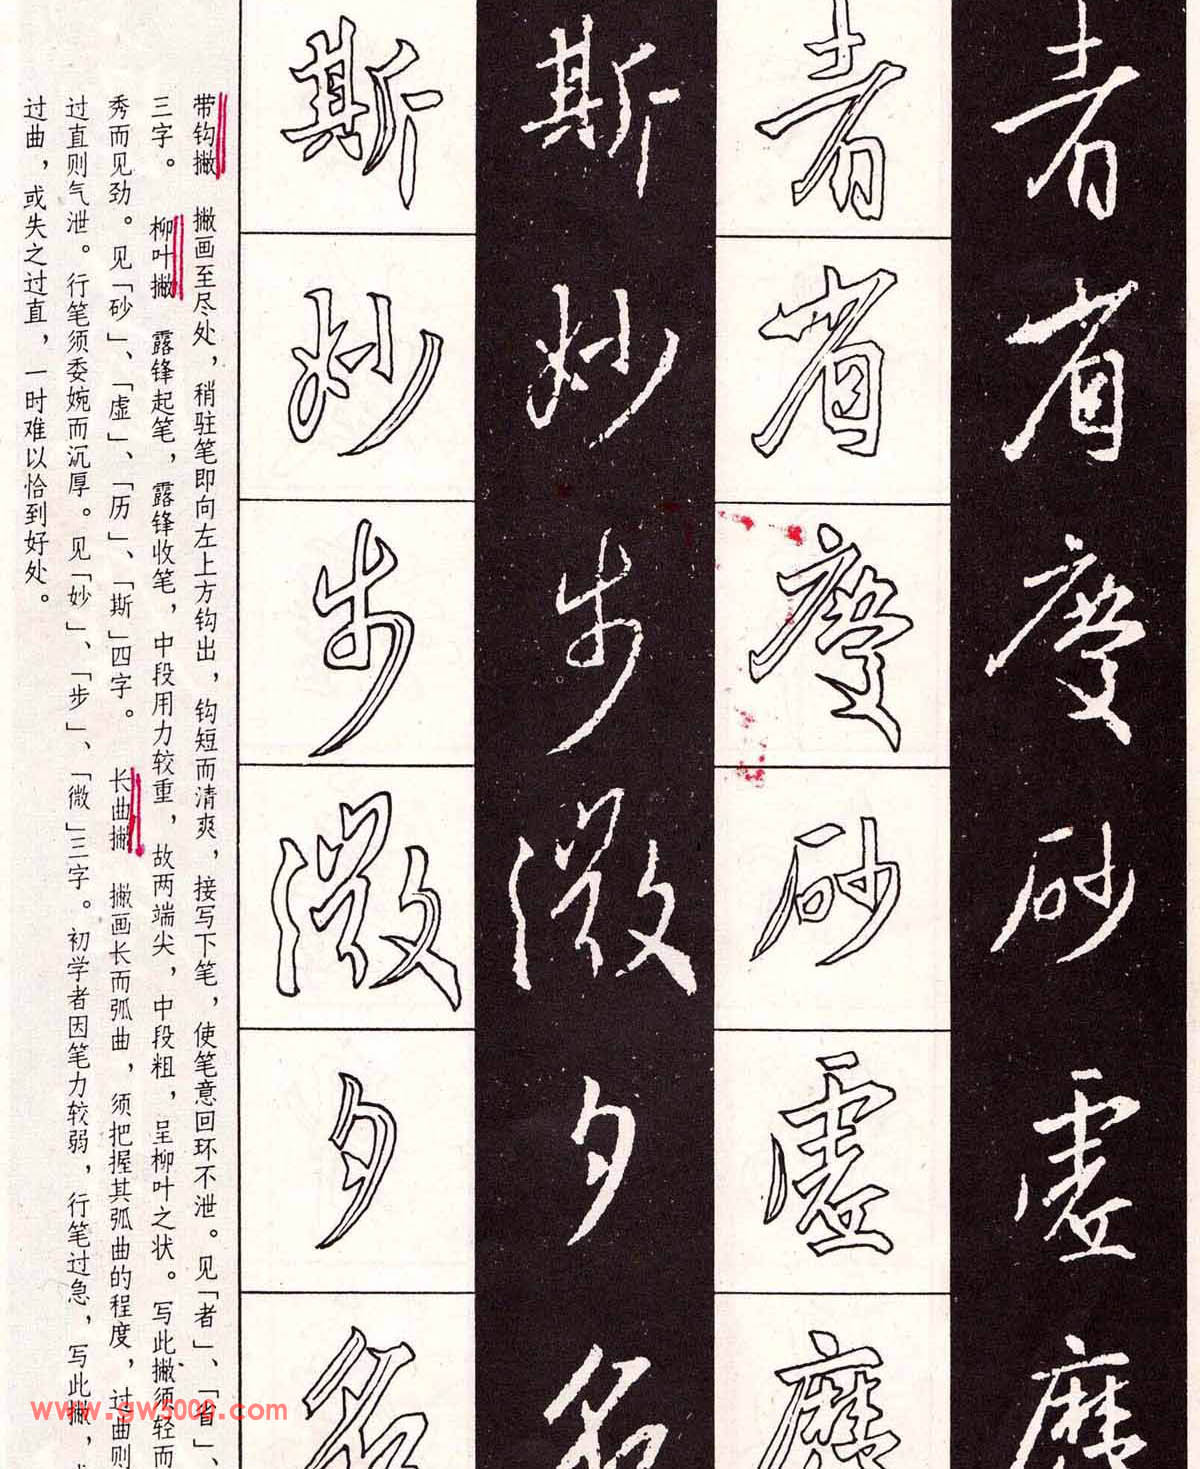 者
省
度
砂
虚
历
者
省
度
砂
虚
历
斯
妙
步
微
夕
名
斯
妙
步
微
夕
名
带钩撇 撇画至尽处，稍驻笔即向左上方钩出，钩短而清爽，接写下笔，使笔意回环不泄。见「者」、「省」、
三字。 柳叶撇 露锋起笔，露锋收笔，中段用力较重，故两端尖，中段粗，呈柳叶之状。写此撇须轻而
秀而见劲。见「砂」、「虚」、「历」、「斯」四字。 长曲撇 撇画长而弧曲，须把握其弧曲的程度，过曲则
过直则气泄。行笔须委婉而沉厚。见「妙」、「步」、「微」三字。初学者因笔力较弱，行笔过急，写此撇，
过曲，或失之过直，一时难以恰到好处。
www.gw5000.com